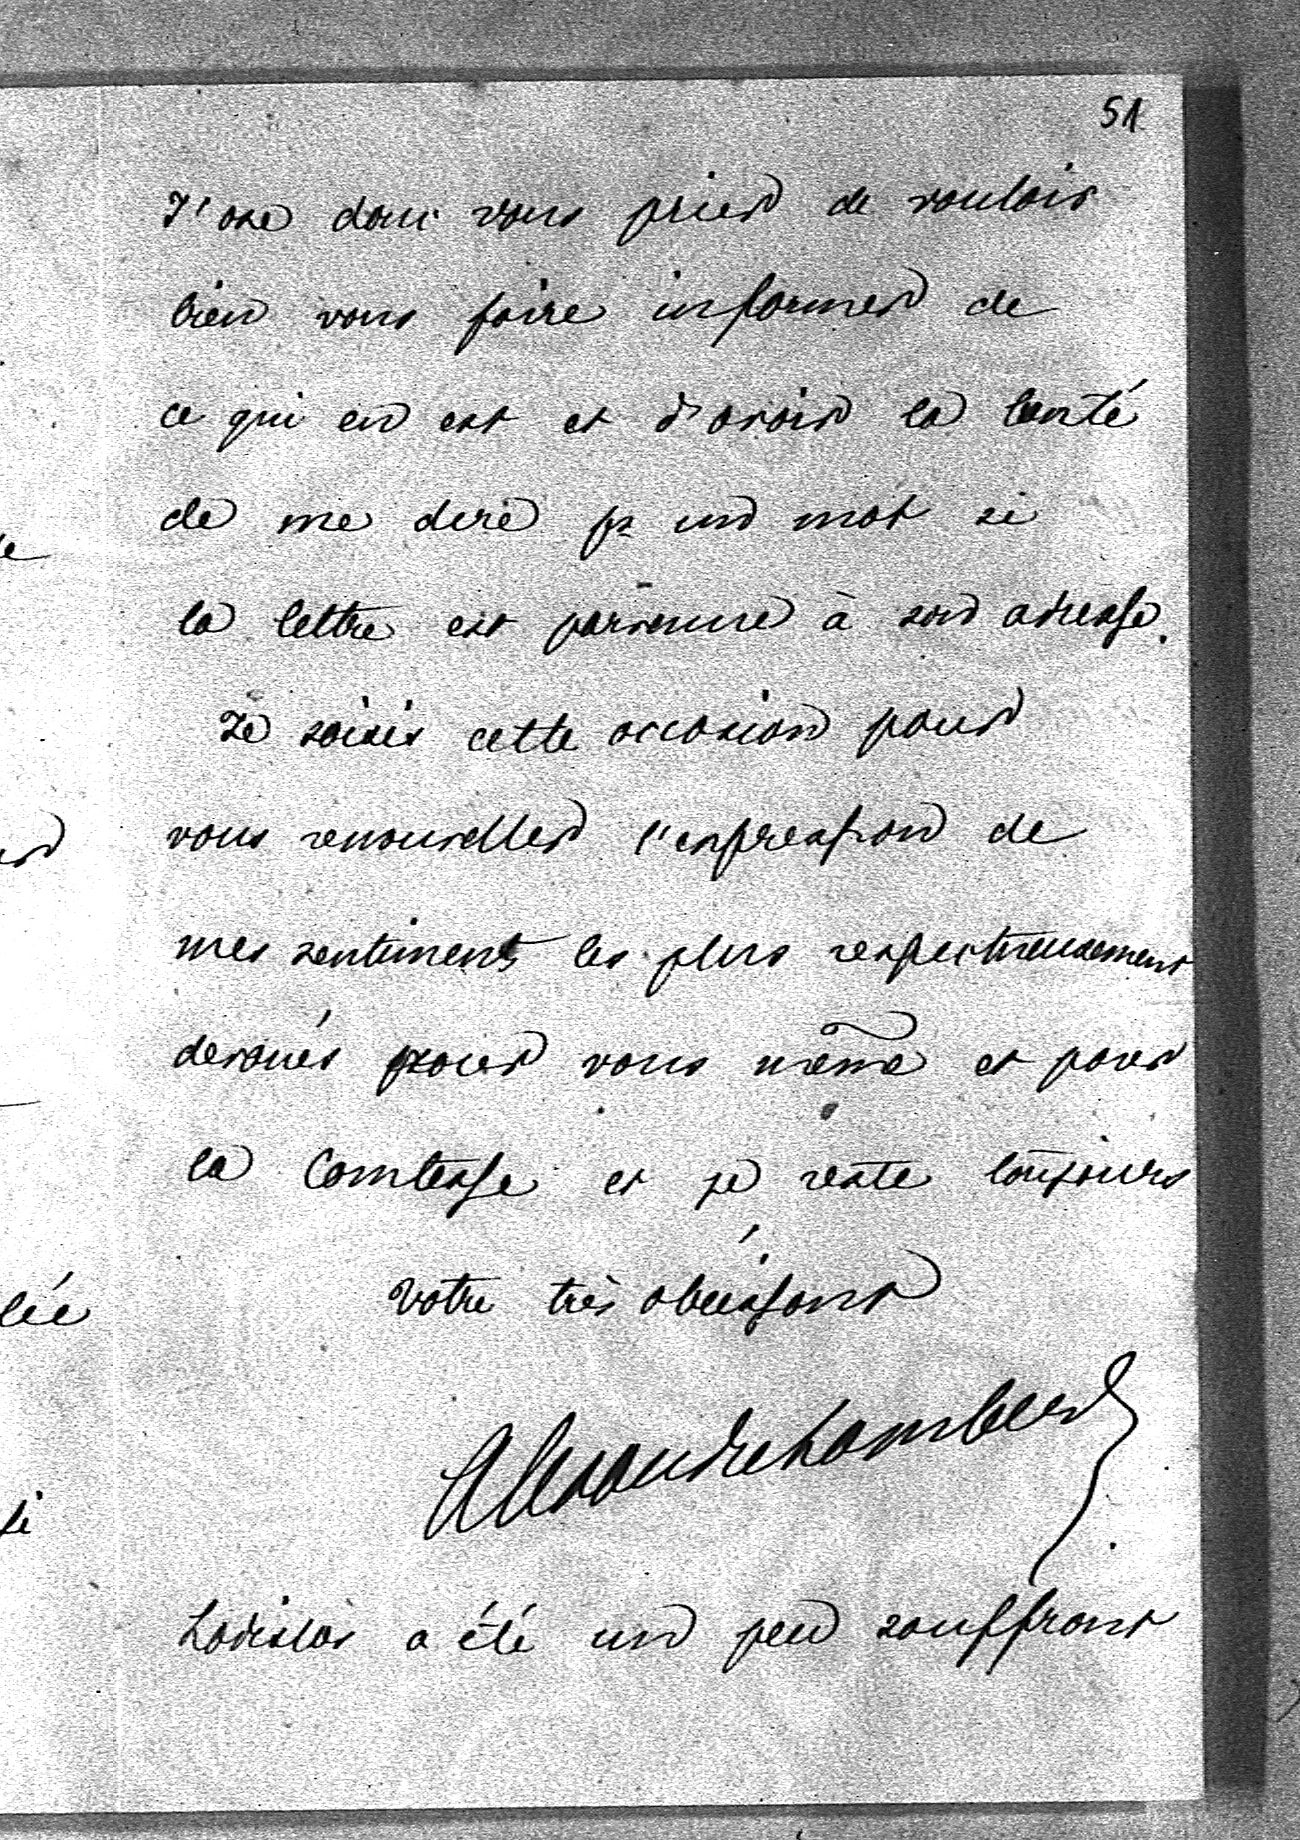 51
J'ose donc vous prier de vouloir
bien vous faire informer de
ce qui en est et d'avoir la bonté
de me dire pr un mot si
la lettre est parvenue à son adresse.
Je saisis cette occasion pour
vous renouveller l'expression de
mes sentiments les plus respectueusement
dévoués pour vous même et pour
la Comtesse et je reste toujours
Votre très obéissant
Alexandre Lambert
Ladislas a été un peu souffrant